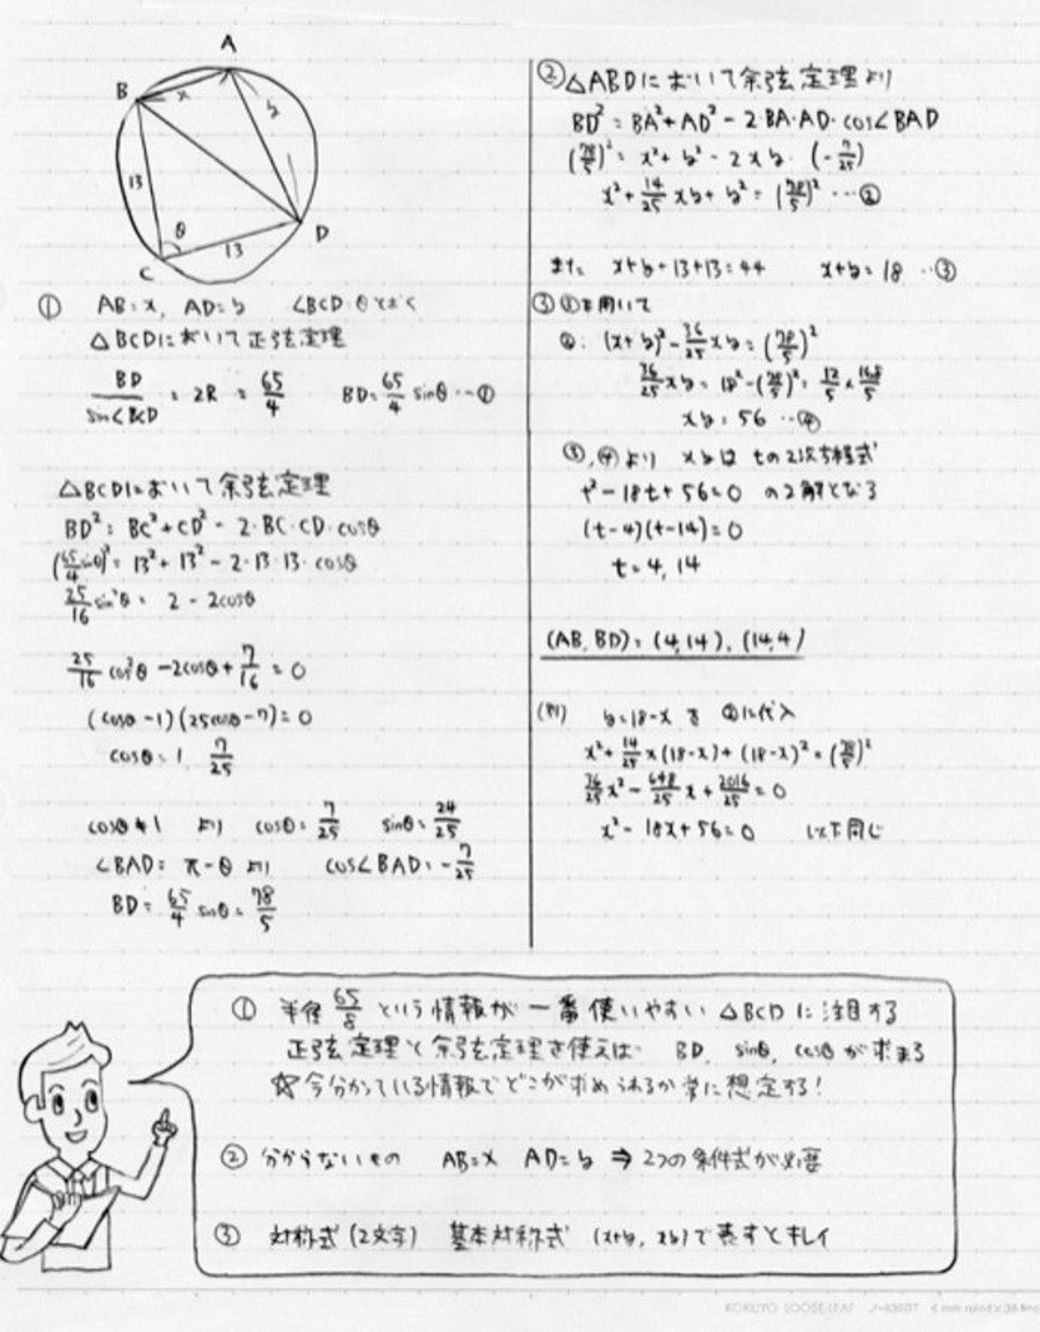 A
B
x
y
13
θ
13
D
C
① AB=x, AD=y ∠BCD=θとおく
△BCDにおいて正弦定理
BD/sin∠BCD = 2R = 65/4 BD=65/4 sinθ…①
△BCDにおいて余弦定理
BD²=BC²+CD²-2・BC・CD・cosθ
(65/4 sinθ)²=13²+13²-2・13・13・cosθ
25/16 sin²θ= 2-2cosθ
25/16 cos²θ-2cosθ+7/16=0
(cosθ-1)(25cosθ-7)=0
cosθ=1, 7/25
cosθ≠1 より cosθ=7/25 sinθ=24/25
∠BAD=π-θ より cos∠BAD=-7/25
BD=65/4 sinθ=78/5
② △ABDにおいて余弦定理より
BD²=BA²+AD²-2・BA・AD・cos∠BAD
(78/5)²=x²+y²-2xy・(-7/25)
x²+14/25 xy+y²=(78/5)²…②
また x+y+13+13=44 x+y=18…③
③ ③を用いて
②: (x+y)²-36/25 xy=(78/5)²
36/25 xy=18²-(78/5)²=12/5×168/5
xy=56…④
③,④より xyは tの2次方程式
t²-18t+56=0 の2解となる
(t-4)(t-14)=0
t=4, 14
(AB, BD)=(4,14), (14,4)
(別) y=18-x を ②に代入
x²+14/25 x(18-x)+(18-x)²=(78/5)²
36/25 x²-648/25 x+2016/25=0
x²-18x+56=0 以下同じ
① 半径65/8という情報が一番使いやすい△BCDに注目する
正弦定理と余弦定理を使えば BD, sinθ, cosθが求まる
☆今分かっている情報でどこが求められるか常に想定する!
② 分からないもの AB=x AD=y ⇒ 2つの条件式が必要
③ 対称式(2文字) 基本対称式 (x+y, xy)で表すとキレイ
KOKUYO LOOSE-LEAF